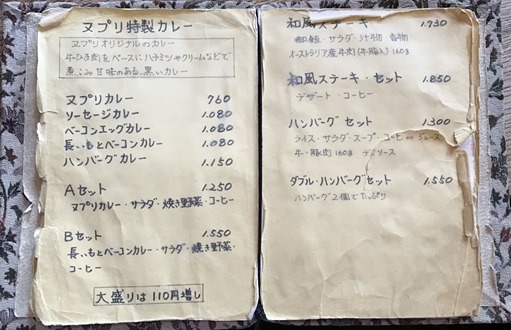 ヌプリ特製カレー
ヌプリオリジナルのカレー
牛ひき肉をベースにハチミツやクリームなどで
煮こみ甘味のある、黒いカレー
ヌプリカレー 760
ソーセージカレー 1.080
ベーコンエッグカレー 1.080
長いもとベーコンカレー 1.080
ハンバーグカレー 1.150
Aセット 1.250
ヌプリカレー・サラダ・焼き野菜・コーヒー
Bセット 1.550
長いもとベーコンカレー・サラダ・焼き野菜・
コーヒー
大盛りは110円増し
和風ステーキ 1.730
御飯・サラダ・汁物・香物
オーストラリア産牛肉(牛脂入)160g
和風ステーキ・セット 1.850
デザート・コーヒー
ハンバーグセット 1.300
ライス・サラダ・スープ・コーヒー
牛・豚肉160g デミソース
ダブル・ハンバーグセット 1.550
ハンバーグ2個でたっぷり